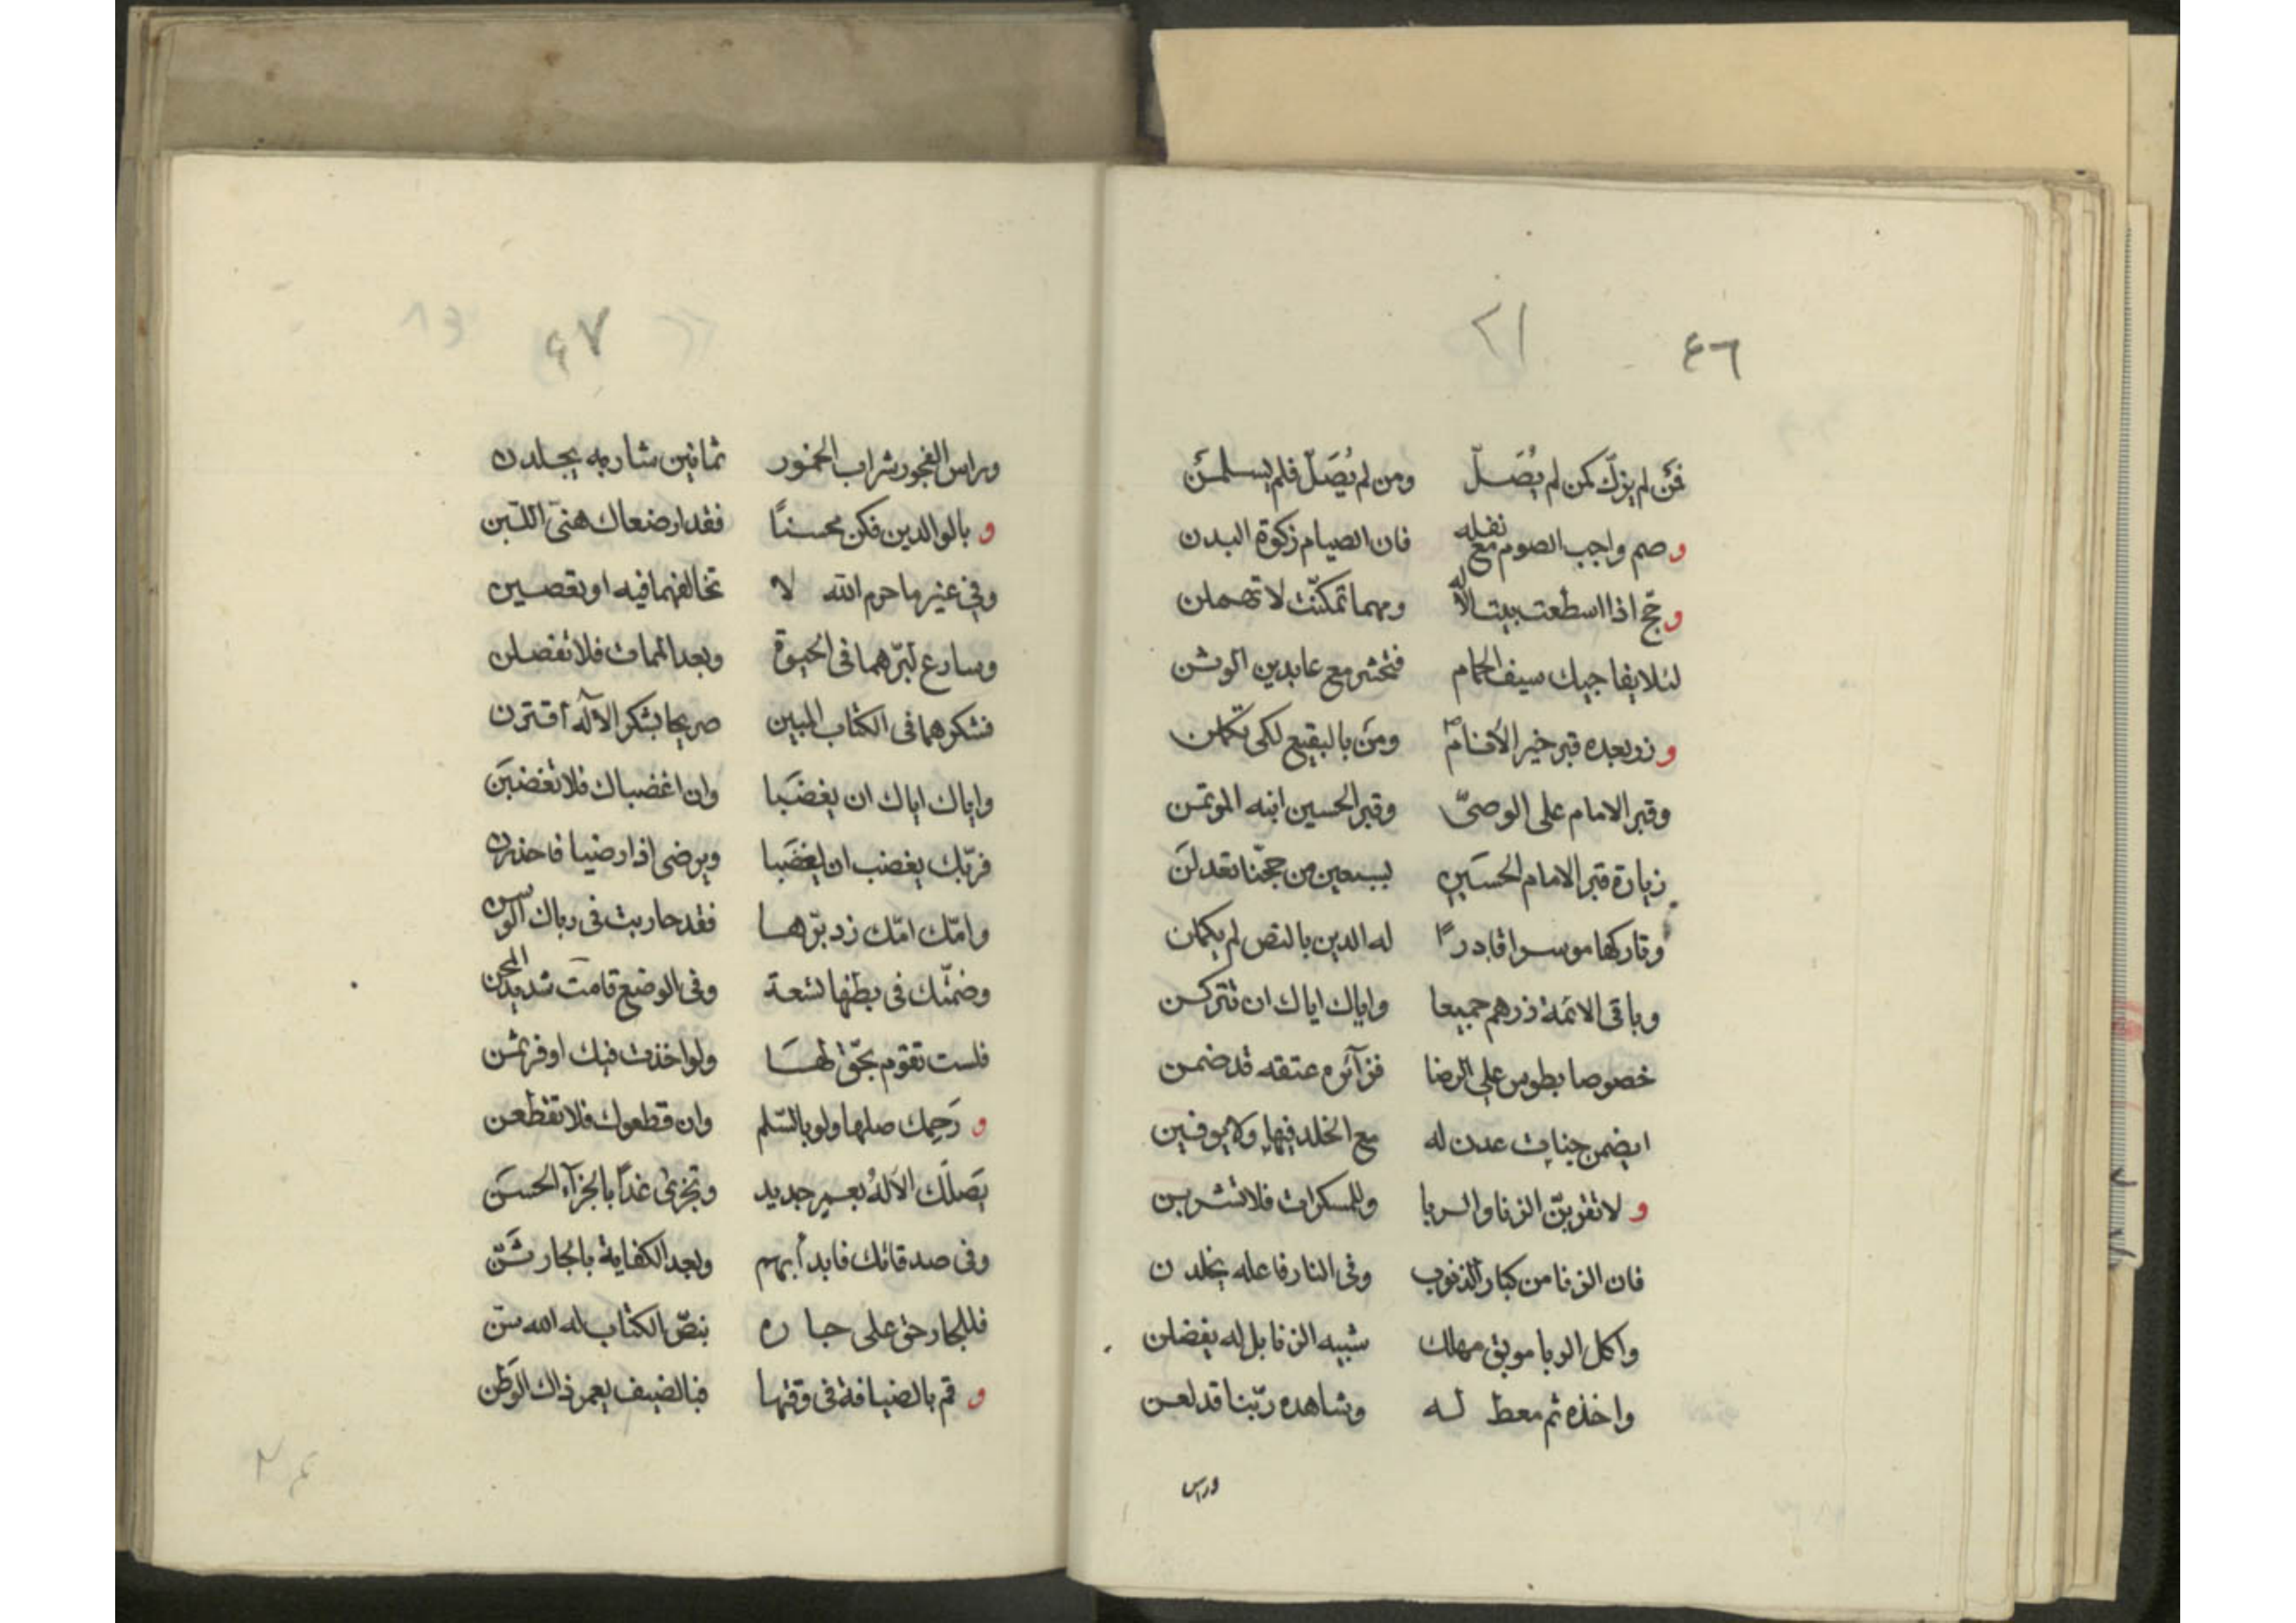 ٤٦
٢١
فمن لم يزكّ كمن لم يُصَلّ ومن لم يُصَلّ فلم يسلمن
و صم واجب الصوم مع نفله فان الصيام زكوة البدن
و حج اذا اسطعت بيت الاله ومهما تمكنت لا تهملن
لئلا يفاجيك سيف الحمام فتحشر مع عابدين الوثن
و زر بعده قبر خير الأنام ومن بالبقيع لكى تكملن
وقبر الامام على الوصىّ وقبر الحسين ابنه الموتمن
زيارة قبر الامام الحسين بسبعين من حجّنا تعدلن
وتاركها موسرا قادرا له الدين بالنص لم يكملن
وباقى الائمة زرهم جميعا واياك اياك ان تتركن
خصوصا بطوس على الرضا فزآئره عتقه قد ضمن
ايضمن جنات عدن له مع الخلد فيها ولا يوفين
و لا تقربنّ الزنا والربا وللمسكرات فلا تشربن
فان الزنا من كبار الذنوب وفى النار فاعله يخلدن
واكل الربا موبق مهلك شبيه الزنا بل له يفضلن
واخذه ثم معط له وشاهده ربّنا قد لعن
وراس
٤٧
وراس الفجور شراب الخمور ثمانين شاربه يجلدن
و بالوالدين فكن محسناً فقد ارضعاك هنىّ اللبن
وفى غير ما حرم الله لا تخالفهما فيه او تعصين
وسارع لبرّهما فى الحيوة وبعد الممات فلا تفصلن
فشكرهما فى الكتاب المبين صريحا بشكر الآله أقترن
واياك اياك ان يغضبا وان اغضباك فلا تغضبن
فربّك يغضب ان يغضبا ويرضى اذا رضيا فاحذرن
وامّك امّك زد برّها فقد حاربت فى رباك الوسن
وضمّتك فى بطنها تسعة وفى الوضع قامت شديد المحن
فلست تقوم بحقّ لها ولو اخذت فيك اوفر ثمن
و رَحِمك صلها ولو بالسّلم وان قطعوك فلا تقطعن
يَصلك الآلهُ بعمر جديد وتجزى غداً بالجزآء الحسن
وفى صدقاتك فابدأ بهم وبعد الكفاية بالجار ثنّ
فللجار حق على جاره بنصّ الكتاب له الله سنّ
و قم بالضيافة فى وقتها فبالضيف يعمر ذاك الوطن